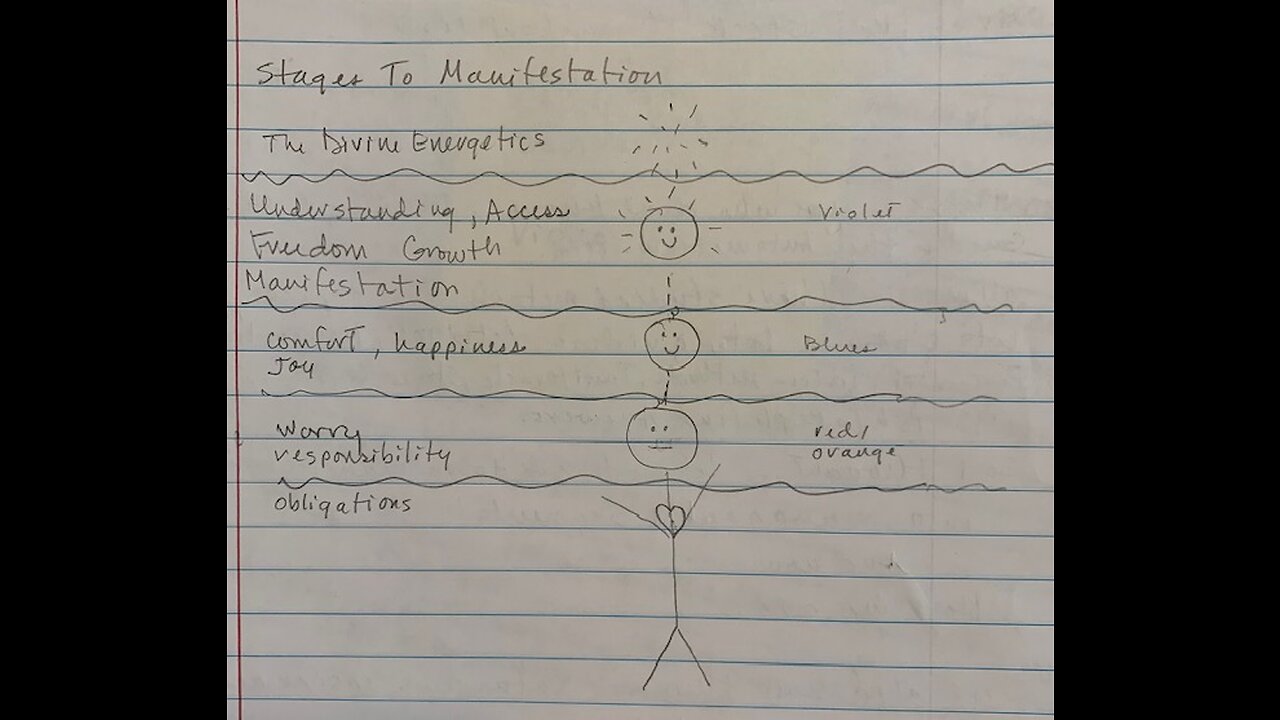 Stages To Manifestation
The Divine Energetics
Understanding, Access
Violet
Freedom Growth
Manifestation
comfort, happiness
Blues
Joy
worry
red/
responsibility
orange
obligations